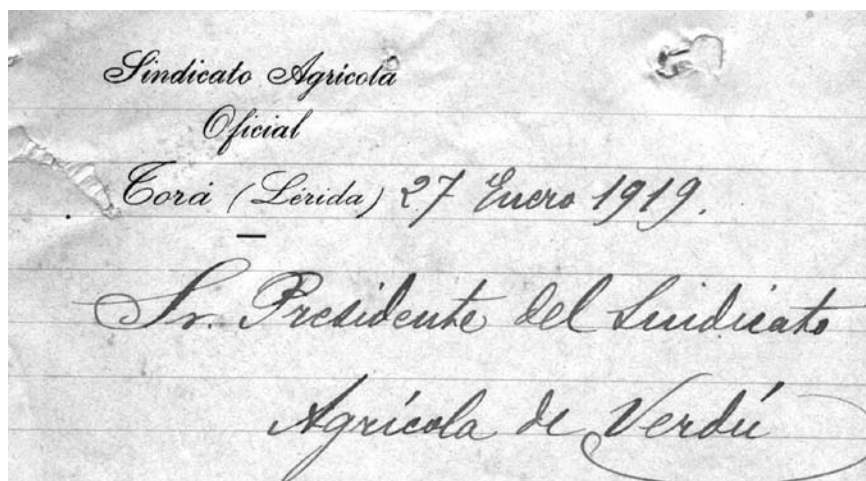 Sindicato Agrícola
Oficial
Torá (Lérida) 27 Enero 1919.
Sr. Presidente del Sindicato
Agrícola de Verdú